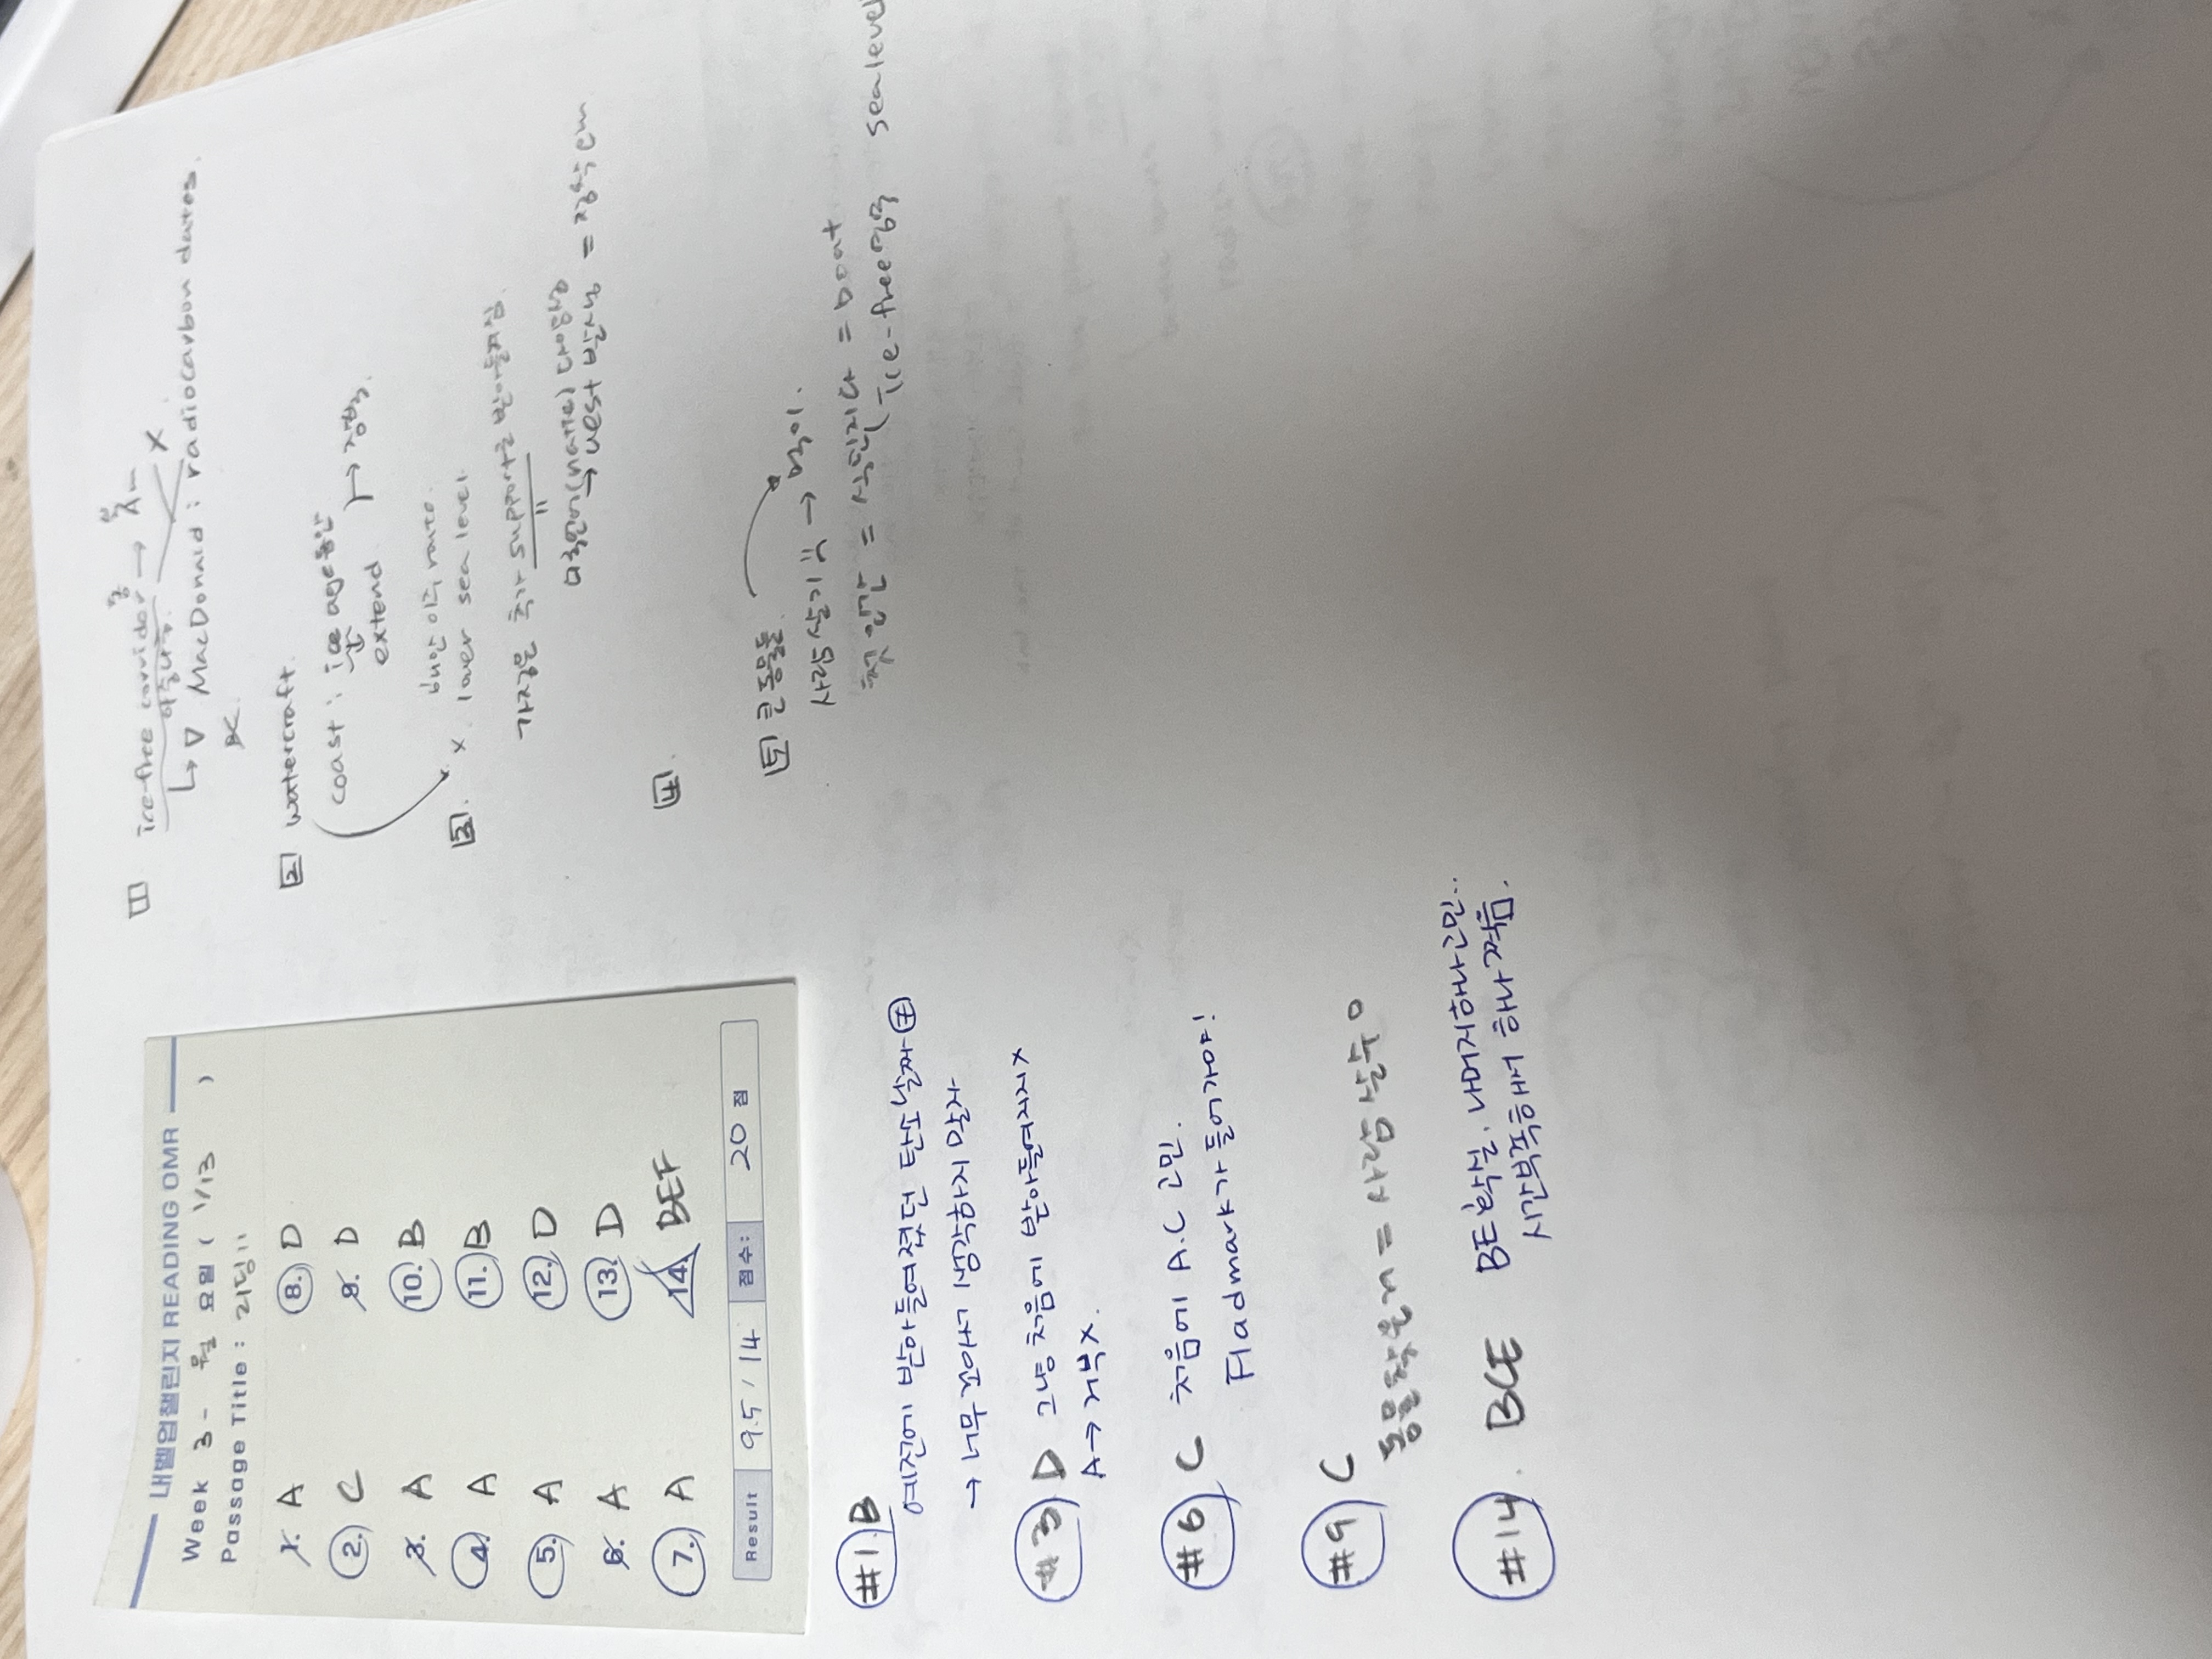 내벨업챌린지 READING OMR
Week 3 - 월 요일 ( 1/13 )
Passage Title : 리딩11
1. A
2. C
3. A
4. A
5. A
6. A
7. A
8. D
9. D
10. B
11. B
12. D
13. D
14. BEF
Result 9.5 / 14 점수: 20 점
#1 B
예전에 받아들여졌던 탄소날짜
→ 너무 꼬아서 생각하지 말자
#3 D 그냥 처음에 받아들여지지 X
A → 거부 X.
#6 C 처음에 A.C 고민.
Fladmark가 들어가야!
#9 C
동식물화석 = 사람거주 이유
#14. BCF BE확실. 나머지하나고민..
시간부족해서 하나 찍음.
1 ice-free corridor →
→ MacDonald : radiocarbon dates.
2 watercraft.
coast : ice age동안
extend
→ 장벽.
3. 해안 이주 route.
x. lower sea level.
가정은 추가 support로 받아들여짐.
미국언어(native) 다양함
→ west 발달 =
4
5 동물들 → 이동.
사람들기술 →
= 사람의지식 = boat
(ice-free sealevel